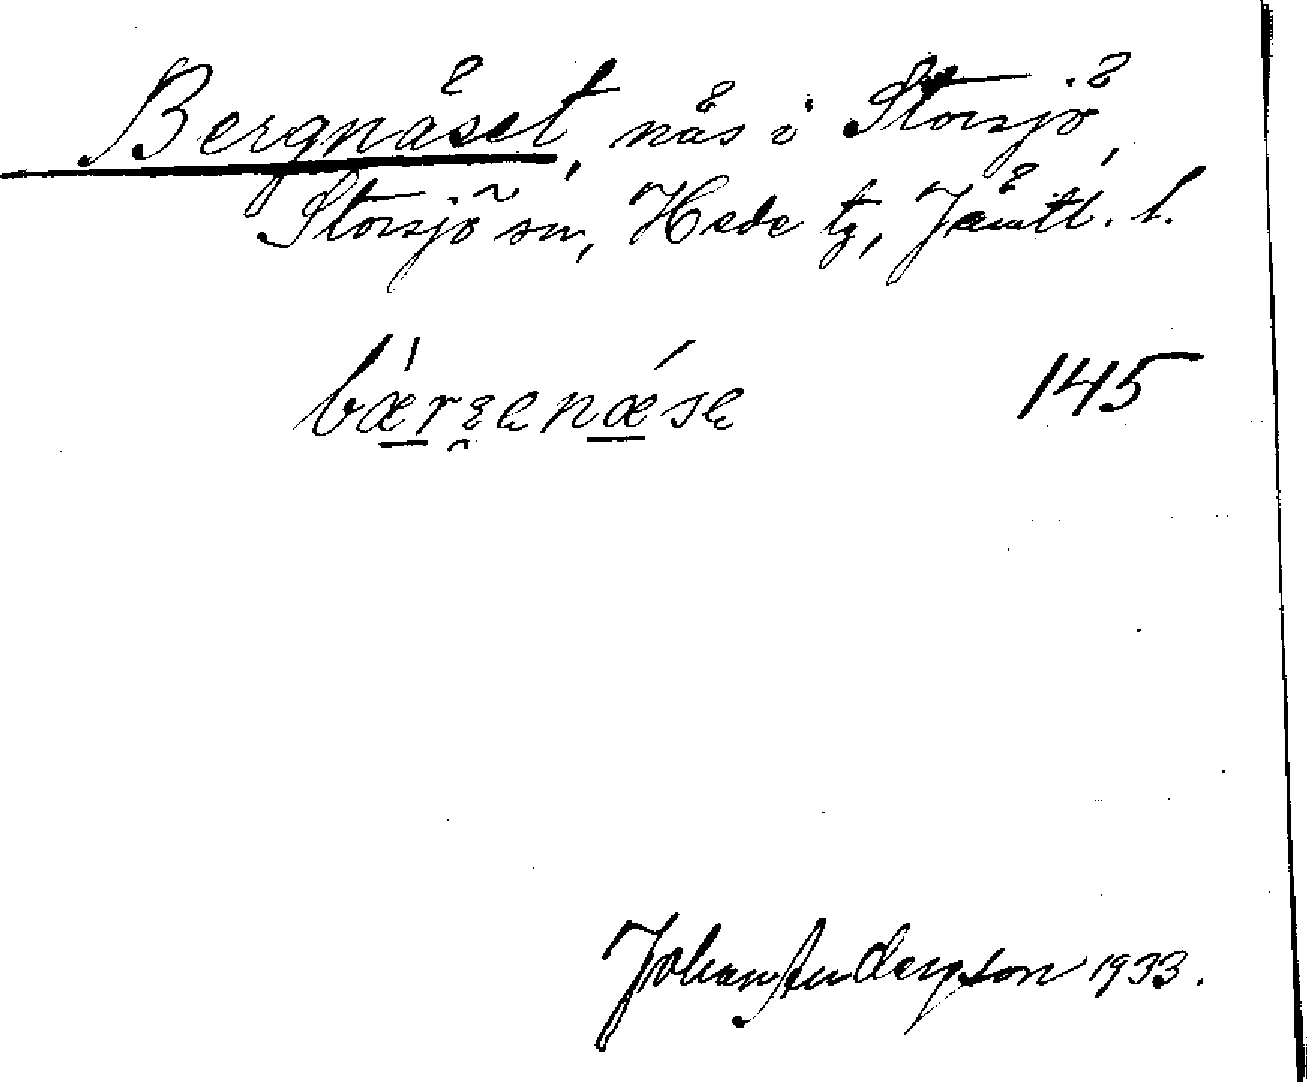 Bergnäset, näs i Storsjö,
Storsjö sn, Hede tg, Jämtl. l.
bæ̀rgenǽse 145
Johan Andersson 1933.